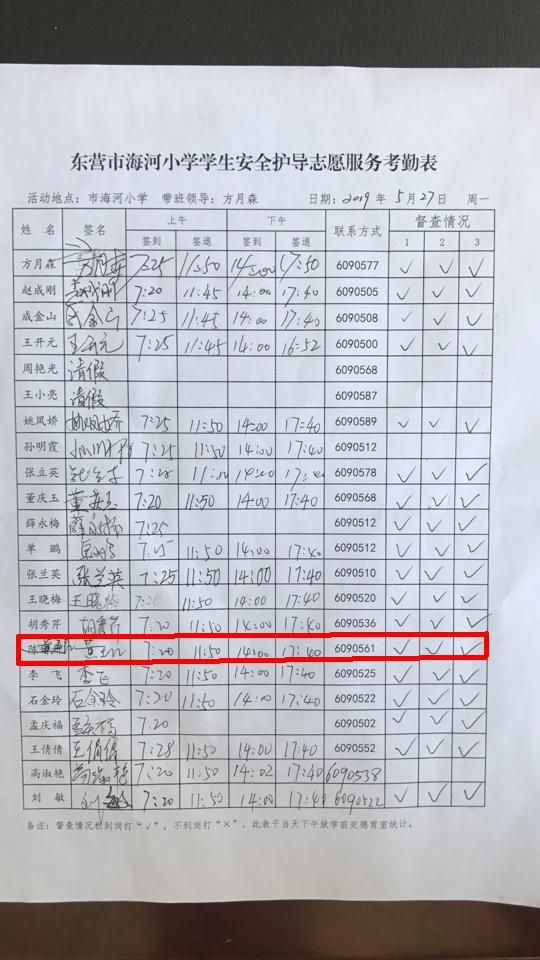 东营市海河小学学生安全护导志愿服务考勤表
活动地点：市海河小学 带班领导：方月森 日期：2019 年 5 月 27 日 周一
姓 名 签名 上午 下午 联系方式 督查情况
签到 签退 签到 签退 1 2 3
方月森 7:25 11:50 14:00 17:50 6090577 ✓ ✓ ✓
赵成刚 7:20 11:45 14:00 17:40 6090505 ✓ ✓ ✓
成金山 成金山 7:25 11:45 14:00 17:40 6090508 ✓ ✓ ✓
王开元 王开元 7:25 11:45 14:00 16:52 6090500 ✓ ✓ ✓
周艳光 请假 6090568
王小亮 请假 6090587
姚凤娇 姚凤娇 7:25 11:50 14:00 17:40 6090589 ✓ ✓ ✓
孙明霞 7:25 11:50 14:00 17:40 6090512
张立英 11:00 6090578 ✓ ✓ ✓
董庆玉 董庆玉 7:20 11:50 14:00 17:40 6090568 ✓ ✓ ✓
薛永梅 薛永梅 7:25 6090512 ✓ ✓ ✓
单 鹏 11:50 14:00 17:40 6090512 ✓ ✓ ✓
张兰英 张兰英 7:25 11:50 14:00 17:40 6090510 ✓ ✓ ✓
王晓梅 王晓梅 7:20 11:50 14:00 17:40 6090520 ✓ ✓ ✓
胡秀芹 胡秀芹 7:20 11:50 14:00 17:40 6090536 ✓ ✓ ✓
陈 7:20 11:50 14:00 17:40 6090561 ✓ ✓ ✓
李 飞 李飞 7:25 11:50 14:00 17:40 6090525 ✓ ✓ ✓
石金玲 石金玲 7:20 11:50 14:00 17:40 6090522 ✓ ✓ ✓
孟庆福 7.20 6090502 ✓ ✓ ✓
王倩倩 王倩倩 7:28 11:50 14:00 17:40 6090552 ✓ ✓ ✓
高淑艳 7:20 11:50 14:02 17:40 6090538
刘 敏 刘敏 7:20 11:50 14:00 6090522 ✓ ✓ ✓
备注：督查情况栏到岗打“√”，不到岗打“×”，此表于当天下午放学前交德育室统计。